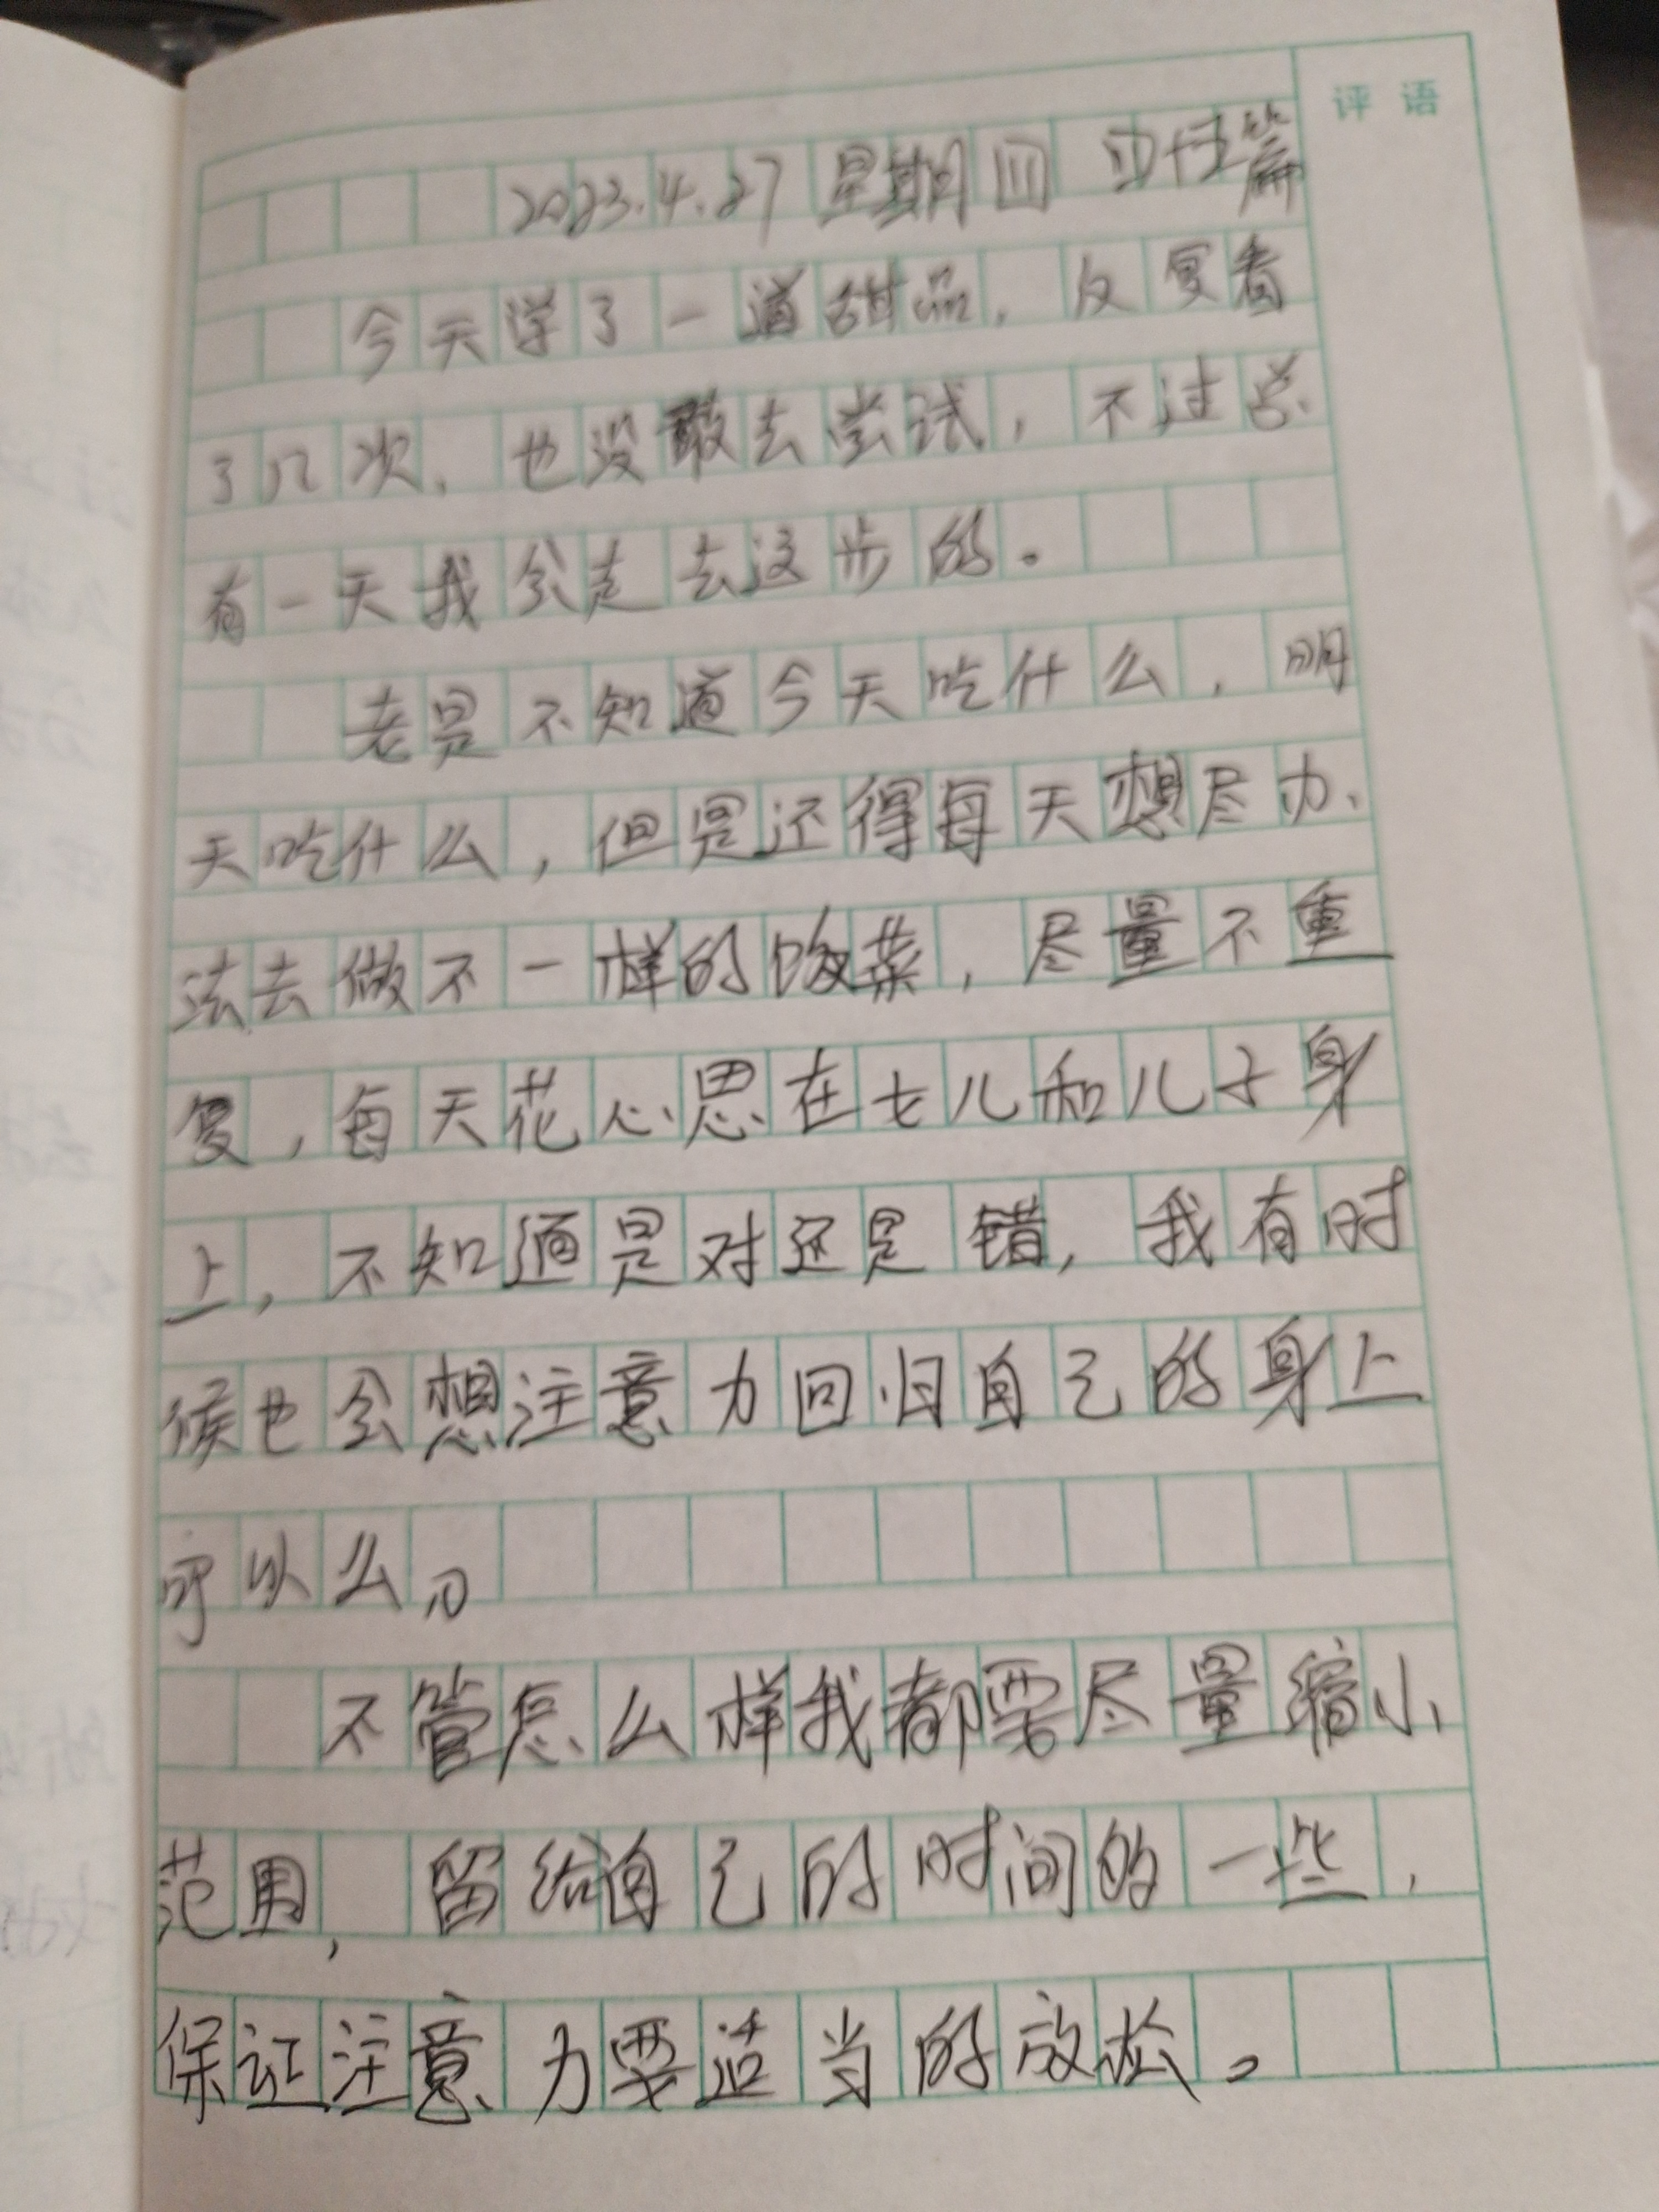 评 语
2023.4.27 星期四 篇
今天学了一道甜品,反复看
了几次,也没敢去尝试,不过总
有一天我会走去这步的。
老是不知道今天吃什么,明
天吃什么,但是还得每天想尽办
法去做不一样的饭菜,尽量不重
复,每天花心思在女儿和儿子身
上,不知道是对还是错,我有时
候也会想注意力回归自己的身上
可以么。
不管怎么样我都要尽量缩小
范围,留给自己的时间的一些,
保证注意力要适当的放松。